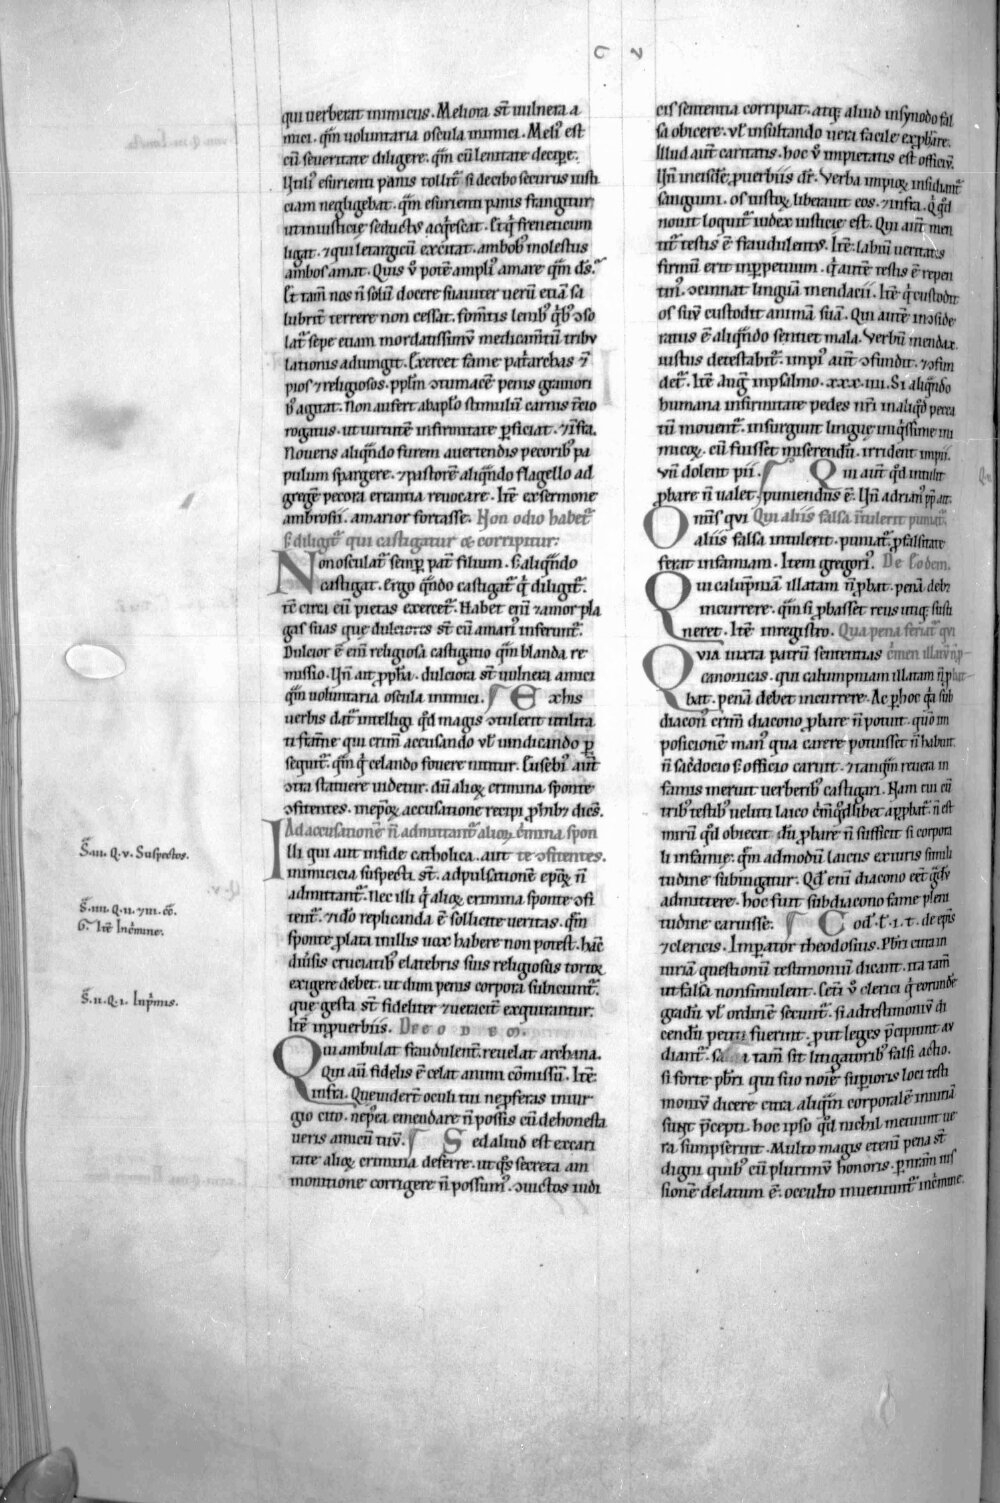 C V
qui uerberat inimicus. Meliora st̄ uulnera a
mici. qm̄ uoluntaria oscula inimici. Meliꝰ est
cū seueritate diligere. qm̄ cū lenitate decipe.
Utiliꝰ esurienti panis tollit᷑ si de cibo securus iusti
ciam negligebat. qm̄ esurienti panis frangitur
ut iniusticie seductꝰ acq̇escat. Et q̇ freneticum
ligat. ⁊ qui letargicū excitat. ambobꝰ molestus
ambos amat. Quis ů potē ampliꝰ amare qm̄ ds̄.
Et tam̄ nos n̄ solū docere suauiter uerū etiā sa
lubrit᷑ terrere non cessat. fomtis lenibꝰ q̇bꝰ ↄso
lat᷑ sepe etiam mordatissimū medicamtū tribu
lationis adiungit. Exercet fame pat̓archas ⁊
pios ⁊ religiosos. pplm̄ ↄtumacē penis grauiori
bꝰ agitat. Non aufert ab aplo stimulū carnis t̄cio
rogatus. ut uirtutē infirmitate ꝑficiat. ⁊ īfra.
Nouens aliqn̄do furem auertendis pecoribꝰ pa
pulum spargere. ⁊ pastorē aliqn̄do flagello ad
gregē pecora errantia reuocare. Itē ex sermone
ambrosii. amarior fortasse. Non odio habet᷑
s; diligit᷑ qui castigatur & corripitur:
Non osculat᷑ semꝑ pat̄ filium. s; aliqn̄do
castigat. Ergo qn̄do castigat᷑ q̇ diligit᷑.
tē circa eū pietas exercet᷑. Habet enī ⁊ amor pla
gas suas que dulciores st̄ cū amariꝰ inferunt᷑.
Dulcior ē enī religiosa castigatio qm̄ blanda re
missio. Un̄ ait ꝓpha. dulciora st̄ uulnera amici
qm̄ uoluntaria oscula inimici. Ex his
uerbis dat᷑ intelligi qd̄ magis ↄtulerit utilita
ti fam̄e qui crim̄ accusando ul̄ uindicando ꝑ
sequit᷑. qm̄ q̇ celando fouere nitit᷑. Eusebiꝰ aut̄
ↄtra statuere uidetur. dū alioꝝ crimina sponte
ↄfitentes. in epoꝝ accusatione recipi ꝓhibꝫ dicēs.
Ad accusationē n̄ admittant᷑ alioꝝ c̓mina spon
Illi qui aut in fide catholica. aut te ↄfitentes.
inimicicia suspecti st̄. ad pulsationē epoꝝ n̄
admittant᷑. Nec illi q̇ alioꝝ crimina sponte ↄfi
tent᷑. ⁊ idō replicanda ē sollicite ueritas. qm̄
sponte ꝓlata in illis uox habere non potest. hāc
diūsis cruciatibꝰ e latebris suis religiosus tortor
exigere debet. ut dum penis corpora subiciunt᷑.
que gesta st̄ fideliter ⁊ ueracit᷑ exquirantur.
Itē in ꝓuerbiis. De eodem.
Qui ambulat fraudulent᷑. reuelat archana.
Qui aū fidelis ē celat animi cōmissū. Itē
infra. Que uider̄t oculi tui ne ꝓferas in iur
gio cito. ne p̓ea emendare n̄ possis cū dehonesta
ueris amicū tuū. Sed aliud est ex cari
tate alioꝝ crimina deferre. ut qͦs secreta am
monitione corrigere n̄ possumꝰ. ↄuictos iudi
S̄. iii. q. v. Suspectos.
S̄. iiii. q. ii. ⁊ iii. cō.
G. Itē In c̓mine.
S̄. ii. q. i. In p̓mis.
cis sententia corripiat. atqꝫ aliud in synodo fal
sa obicere. ul̄ insultando uera facile exꝓbare.
Illud aut̄ caritatis. hoc ů impietatis est officiū.
Un̄ in eisdē ꝓuerbiis dr̄. Verba impioꝝ insidiant᷑
sanguini. os iustoꝝ liberauit eos. ⁊ infra. Q̇ qd̄
nouit loquit᷑ iudex iusticie est. Qui aut̄ men
tit᷑ testis ē fraudulentꝰ. Itē. labiū ueritatis
firmū erit in ꝑpetuum. q̇ autē testis ē repen
tinꝰ. ↄcinnat linguā mendacii. Itē q̇ custodit
os suū custodit animā suā. Qui autē incōside
ratus ē aliqn̄do sentiet mala. Verbū mendax
iustus detestabit᷑. impiꝰ aut̄ ↄfundit. ⁊ ↄfun
det᷑. Itē Aug̓ in psalmo. xxx. iiii. Si aliqn̄do
humana infirmitate pedes nr̄i in aliqd̄ pecca
tū mouent᷑. insurgunt lingue iniqssime ini
micoꝝ. cū fuisset miserendū. irrident impii.
un̄ dolent pii. Qui aut̄ qd̄ intulit
ꝓbare n̄ ualet. puniendus ē. Un̄ adrianꝰ pp ait.
Omīs qui Qui aliis falsa ītulerit puniat᷑.
aliis falsa intulerit. puniat᷑ ꝓ falsitate
ferat infamiam. Item gregoriꝰ. De Eodem.
Qui calūpniā illatam n̄ ꝓbat. penā debꝫ
incurrere. qm̄ si ꝓbasset reus utiqꝫ susti
neret. Itē in registro. Qua pena feriat᷑ qui
Quia iuxta patrū sententias c̓men illatū n̄ ꝓ-
canonicas. qui calumpniam illatam n̄ ꝓ bat-
bat. penā debet incurrere. Ac ꝑ hoc qa̓ sub
diaconꝰ crim̄ diacono ꝓbare n̄ potuit. quō im
positionē manꝰ qua carere potuisset n̄ habuit.
n̄ sac̓docio s; officio caruit. ⁊ tanqm̄ reuera in
famis meruit uerberibꝰ castigari. Nam cui cū
tribꝰ testibꝰ ueluti laico c̓m qd̄libet appbat. n̄ est
mirū qd̄ obiecit dū ꝓbare n̄ sufficit si corpora
li infamie. qm̄ admodū laicus ex iuris simili
tudine subiugatur. Qd̄ enī diacono eēt gͣdū
admittere. hoc fuit subdiacono fame pleni
tudine caruisse. Cod. l. i. t. de ep̄is
⁊ clericis. Imperator theodosius. Pbr̄i citra in
iuriā questionū testimoniū dicant. ita tam̄
ut falsa non simulent. Cet̓i ů clerici q̇ eorundē
gradū ul̄ ordinē secunt᷑. si ad testimoniū di
cendū petiti fuerint. put leges p̄cipiunt au
diant᷑. salua tam̄ sit litigatoribꝰ falsi actio.
si forte pbr̄i qui suo noīe suꝑioris loci testi
moniū dicere citra aliqm̄ corporalē iniuriā
sunt p̄cepti. hoc ipso qd̄ nichil metuunt ue
ra supꝑserint. Multo magis etenī pena st̄
digni quibꝰ cū plurimū honoris. ꝑ nr̄am ius
sionē delatum ē. occulto inueniunt᷑ in c̓mine.